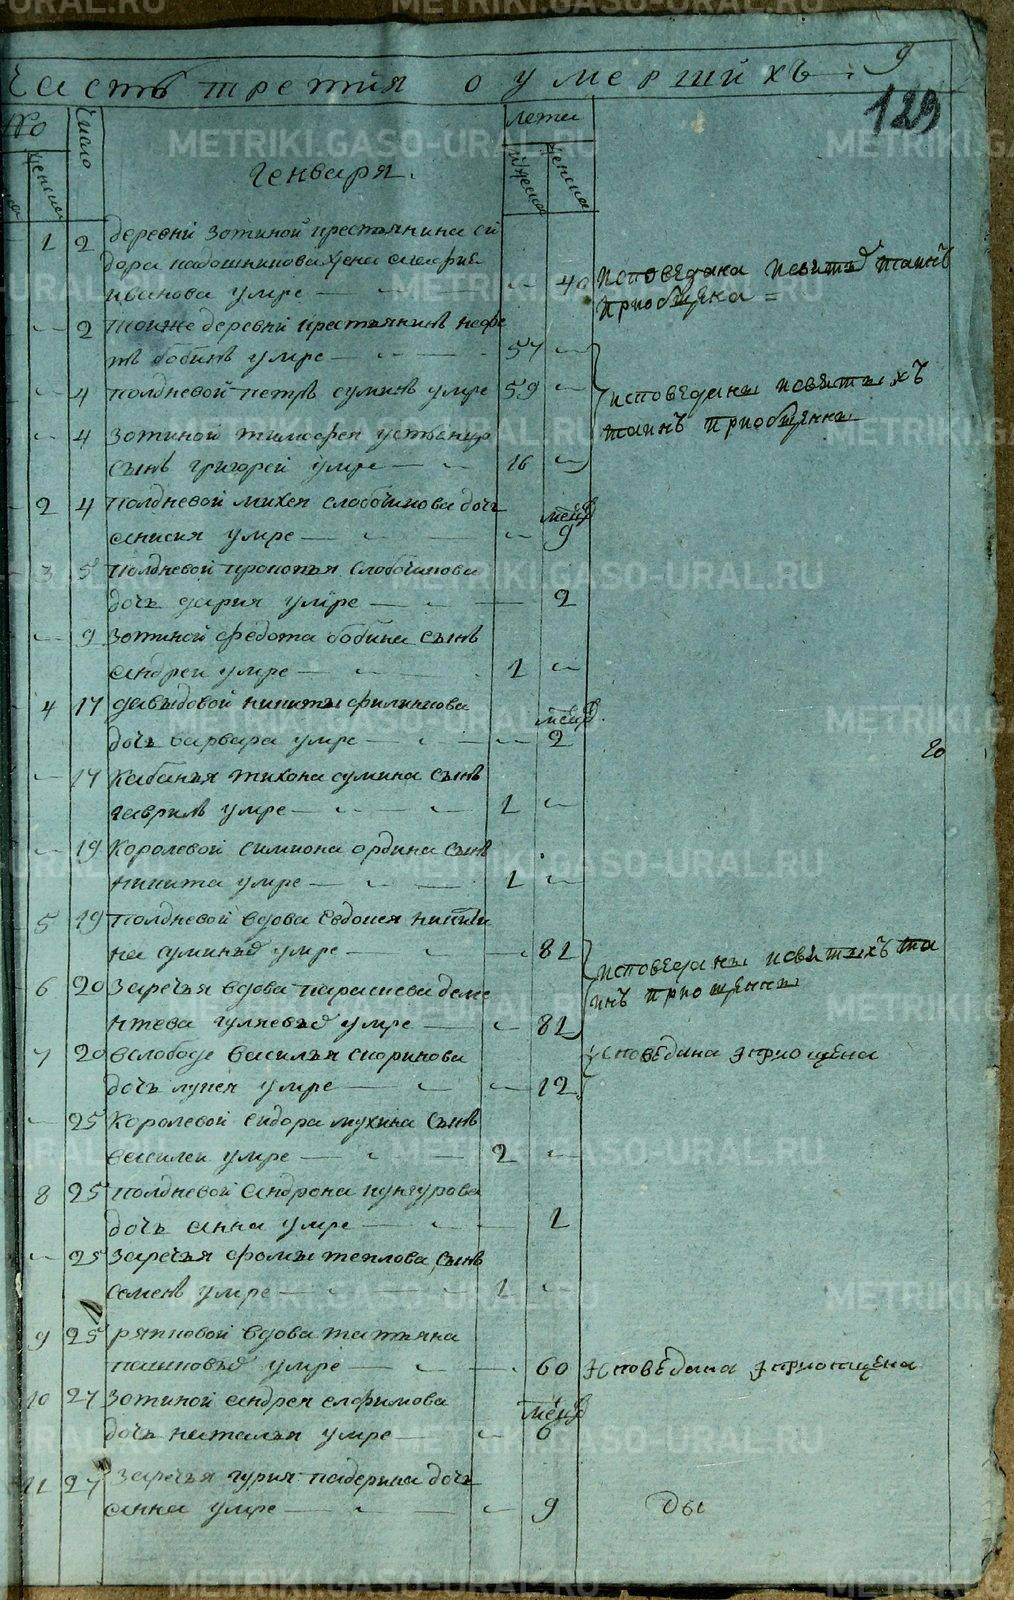 Часть третия о умерших
9
129
No
число
лета
женска
мужеска
женска
Генваря.
1 2 деревни Зотиной крестьянина Си
дора Кадошникова жена
иванова умре — 40 исповедана и свитыхъ таинъ
приобщена =
2 тоиже деревни крестьянинъ
Бобинъ умре — 57
4 полдневой петръ суминъ умре 59 исповеданы и свитыхъ
таинъ приобщены
4 Зотиной тимофея
сынъ григорей умре — 16
2 4 полдневой михея слобочикова дочь
анисия умре — 9
3 5 полдневой прокопья слобочикова
дочь дария умре — 2
9 Зотиной федота бобина сынъ
андреи умре — 1
4 17 давыдовой никиты филинкова
дочь варвара умре — 2
17 кабанья тихона сумина сынъ
гаврилъ умре — 1
19 Королевой симиона ордина сынъ
никита умре — 1
5 19 полдневой вдова Евдокея никити
на суминыхъ умре — 81 исповеданы и свитыхъ та
инъ приощены
6 20 Заречья вдова параскева деме
нтева гуляевыхъ умре — 81
7 20 в слободе василья скорикова исповедана и приощена
дочь лукея умре — 12
25 Королевой сидора мухина сынъ
василеи умре — 2
8 25 полдневой андрона кунгурова
дочь анна умре — 1
25 Заречья фомы теплова сынъ
семенъ умре — 1
9 25 ряпковой вдова татьяна
умре — 60 исповедана и приощена
10 27 Зотиной андрея елфимова
дочь наталья умре — 6
11 27 Заречья гурия падерина дочь
анна умре — 9
METRIKI.GASO-URAL.RU